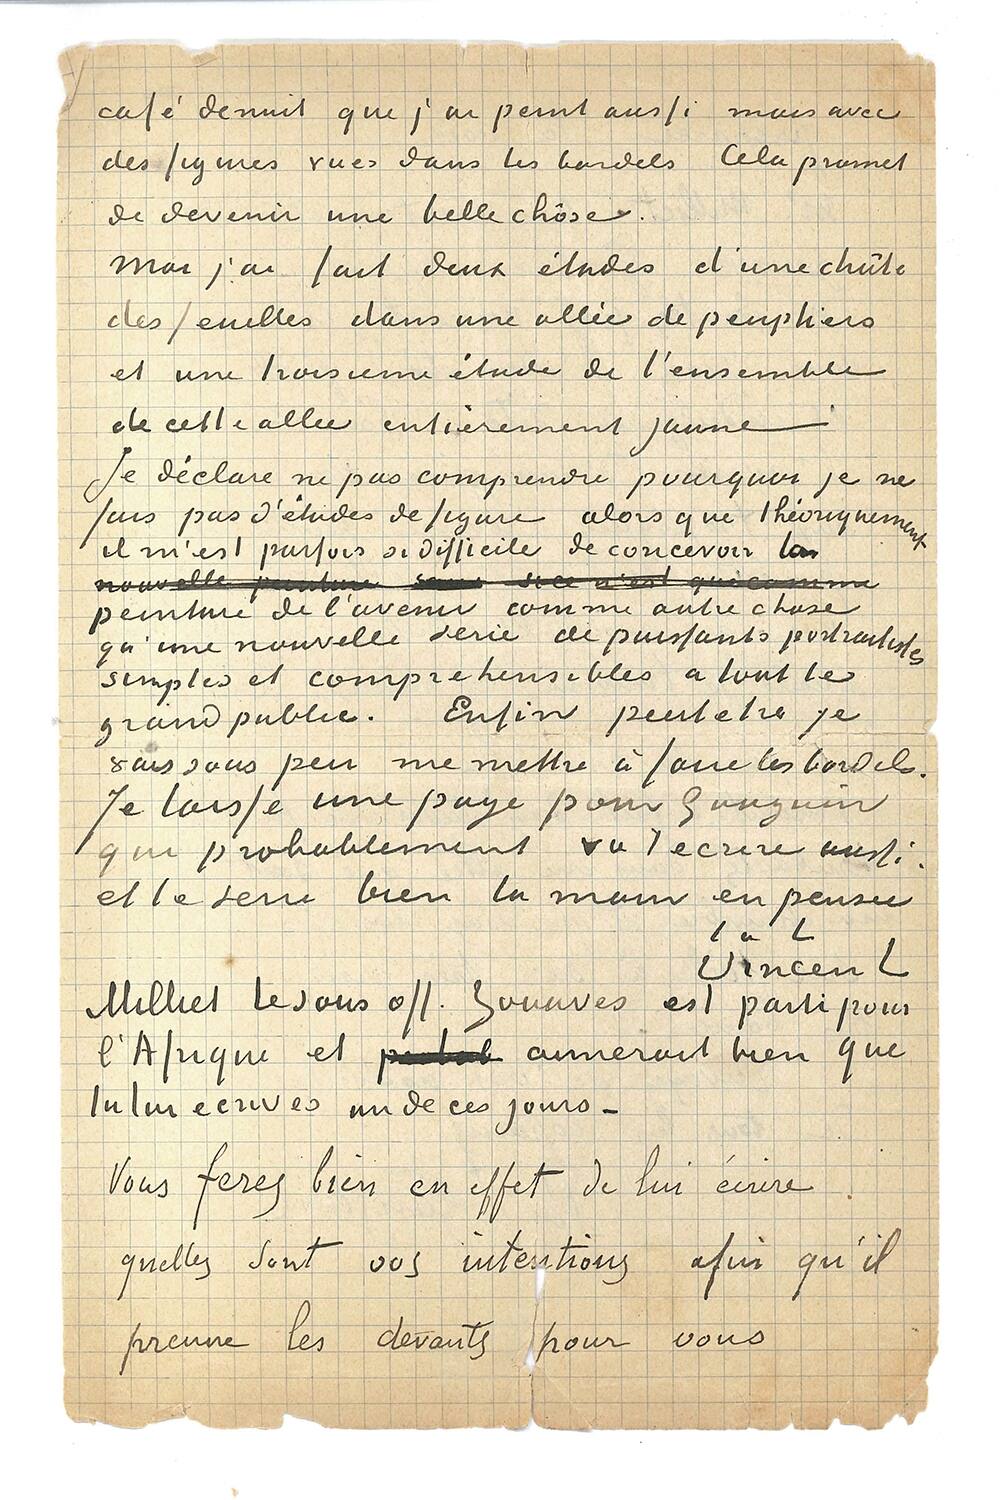 café de nuit que j'ai peint aussi mais avec
des figures vues dans les bordels Cela promet
de devenir une belle chôse.
Moi j'ai fait deux études d'une chûte
des feuilles dans une allée de peupliers
et une troisieme étude de l'ensemble
de cette allée entièrement jaune
Je déclare ne pas comprendre pourquoi je ne
fais pas d'études de figure alors que théoriquement
il m'est parfois si difficile de concevoir la
nouvelle peinture sans si ce n'est que comme
peinture de l'avenir comme autre chose
qu'une nouvelle serie de puissants portraitistes
simples et comprehensibles a tout le
grand public. Enfin peutetre je
vais sous peu me mettre à faire les bordels.
Je laisse une page pour Gauguin
qui probablement va t'ecrire aussi.
et te serre bien la main en pensee
t à t
Vincent
Milliet le sous off. Zouaves est parti pour
l'Afrique et aimerait bien que
tu lui ecrives un de ces jours –
Vous ferez bien en effet de lui écrire
quelles sont vos intentions afin qu'il
prenne les devants pour vous